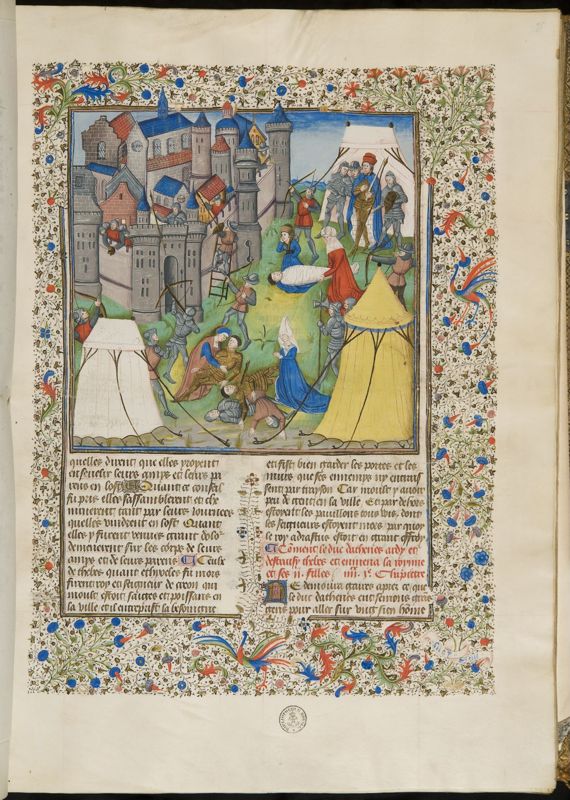 quelles dirent que elles vroyent
ensevelir leurs amys et leurs pa
rens en lost Quant ce conseil
fu pris elles sassamblerent et che
minerent tant par leurs iournees
quelles vindrent en lost Quant
elles y furent venues grant dolo
demenerent sur les corps de leurs
amys et de leurs parens Ceux
de thebes quant ethyocles fu mort
firent roy en
moult estoit saiges et poissans en
la ville et il entreprist la besoingne
et fist bien garder les portes et les
murs que ses ennemys ny entrais
sent par trayson Car moult y avoit
peu de gent en la ville Et par dehors
estoyent les pavillons tous vuis dont
les seigneurs estoyent mors par quoy
le roy adrastus estoit en grant effroy
Coment le duc dathenes ardy et
destruisy thebes et enmena la royne
et ses ii filles Chapittre
demoura gaires apres ce que
le duc dathenes eut semons
gens pour aller sur ung sien home